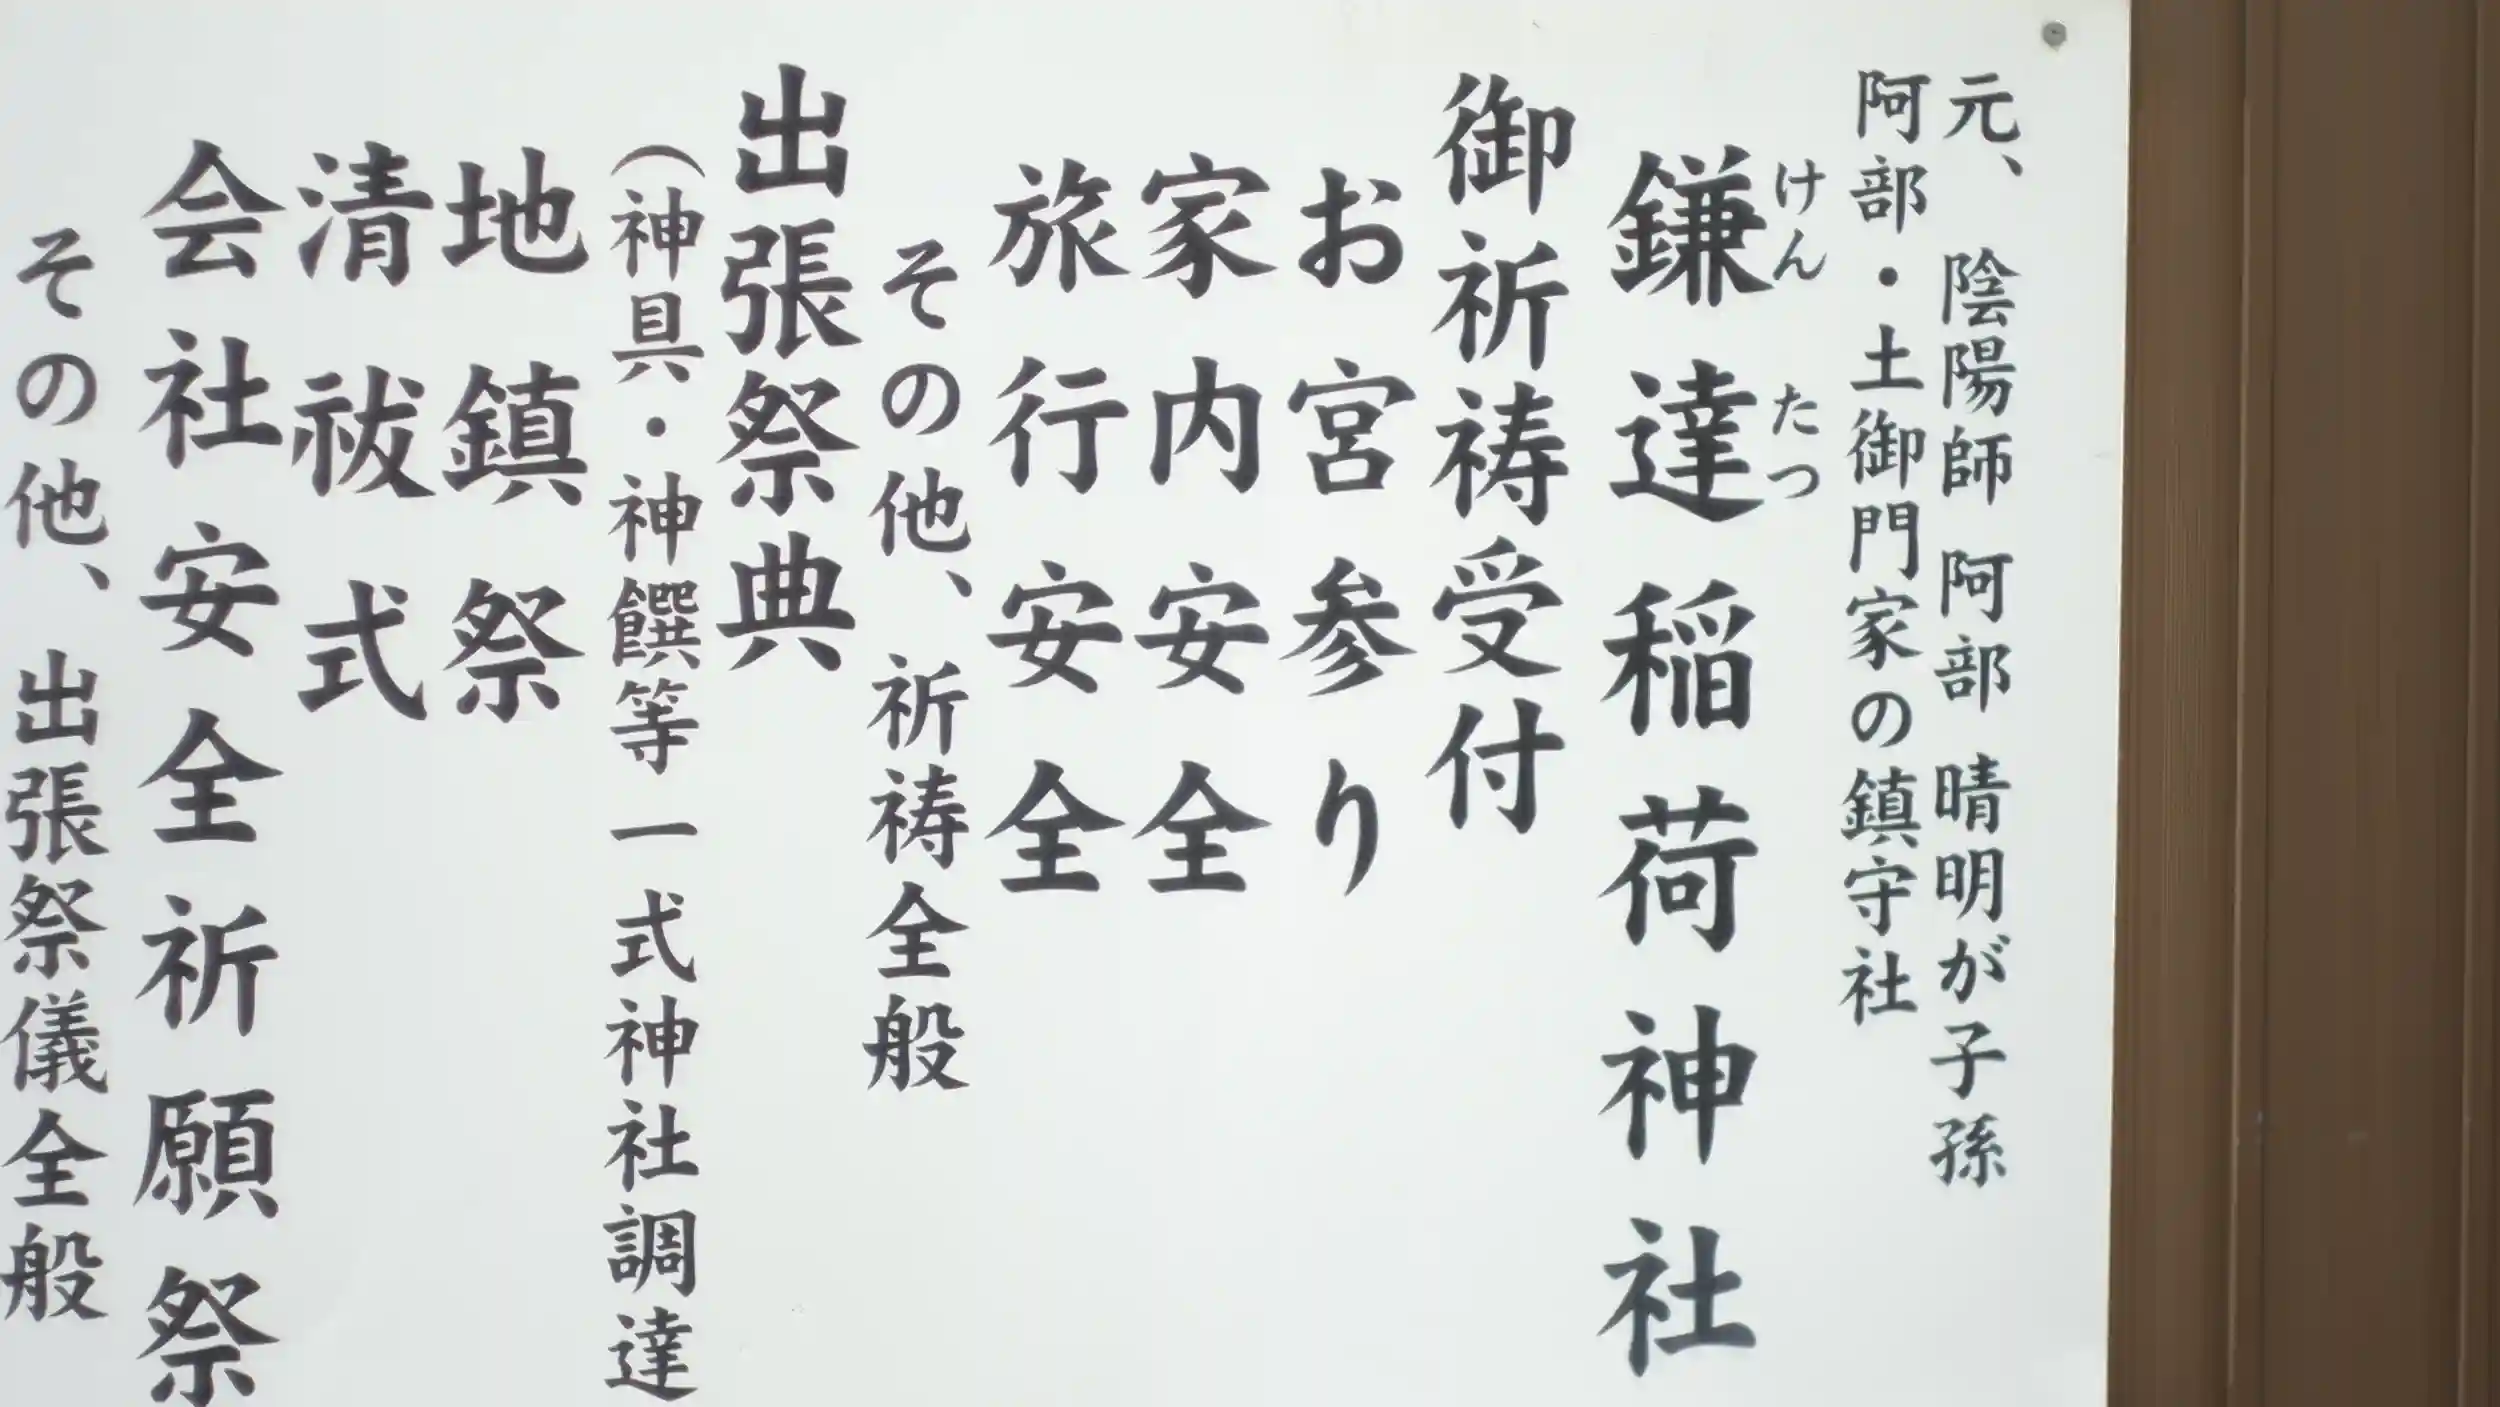 元、陰陽師 阿部 晴明が子孫
阿部・土御門家の鎮守社
けん たつ
鎌達稲荷神社
御祈祷受付
お宮参り
家内安全
旅行安全
その他、祈祷全般
出張祭典
（神具・神饌等一式神社調達
地鎮祭
清祓式
会社安全祈願祭
その他、出張祭儀全般